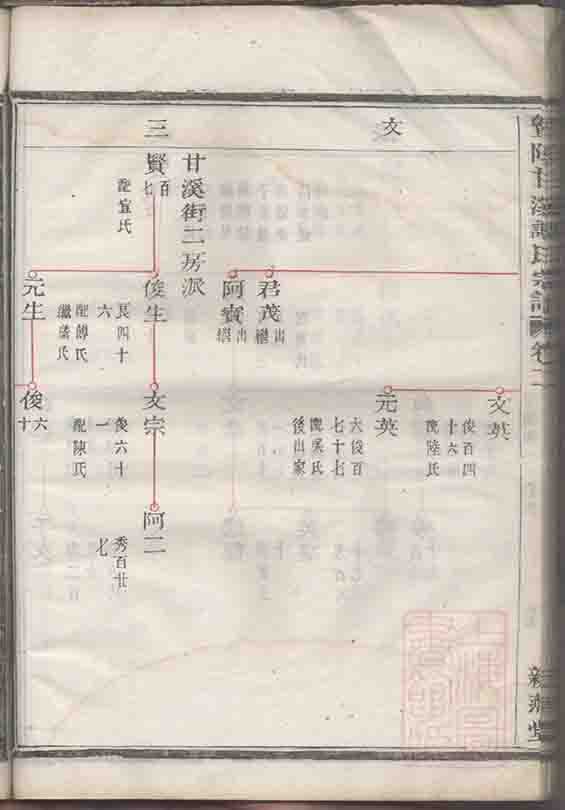 氏宗譜
卷二
文
三
文英
俊百四
十六
配陸氏
元英
大俊百
七十七
配吳氏
後出家
君茂
出繼
阿寶
出繼
甘溪街二房派
賢
百
七
配宣氏
俊生
艮四十
六
配傅氏
繼葉氏
文宗
俊六十
一
配陳氏
阿二
秀百廿
七
元生
俊
六
十